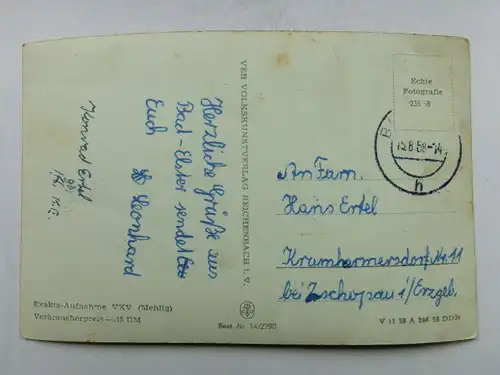 Herzliche Grüße aus
Bad-Elster sendet
Euch Leonhard
Konrad Ertel
VEB VOLKSKUNSTVERLAG REICHENBACH I. V.
Echte
Fotografie
15.8.58-14
h
An Fam.
Hans Ertel
Krumhermersdorf Nr. 11
bei Zschopau i/Erzgeb.
Exakta-Aufnahme VKV (Mehlig)
Verbraucherpreis —.15 DM
Best. Nr. 14/2590
V 11 28 A 266 58 DDR